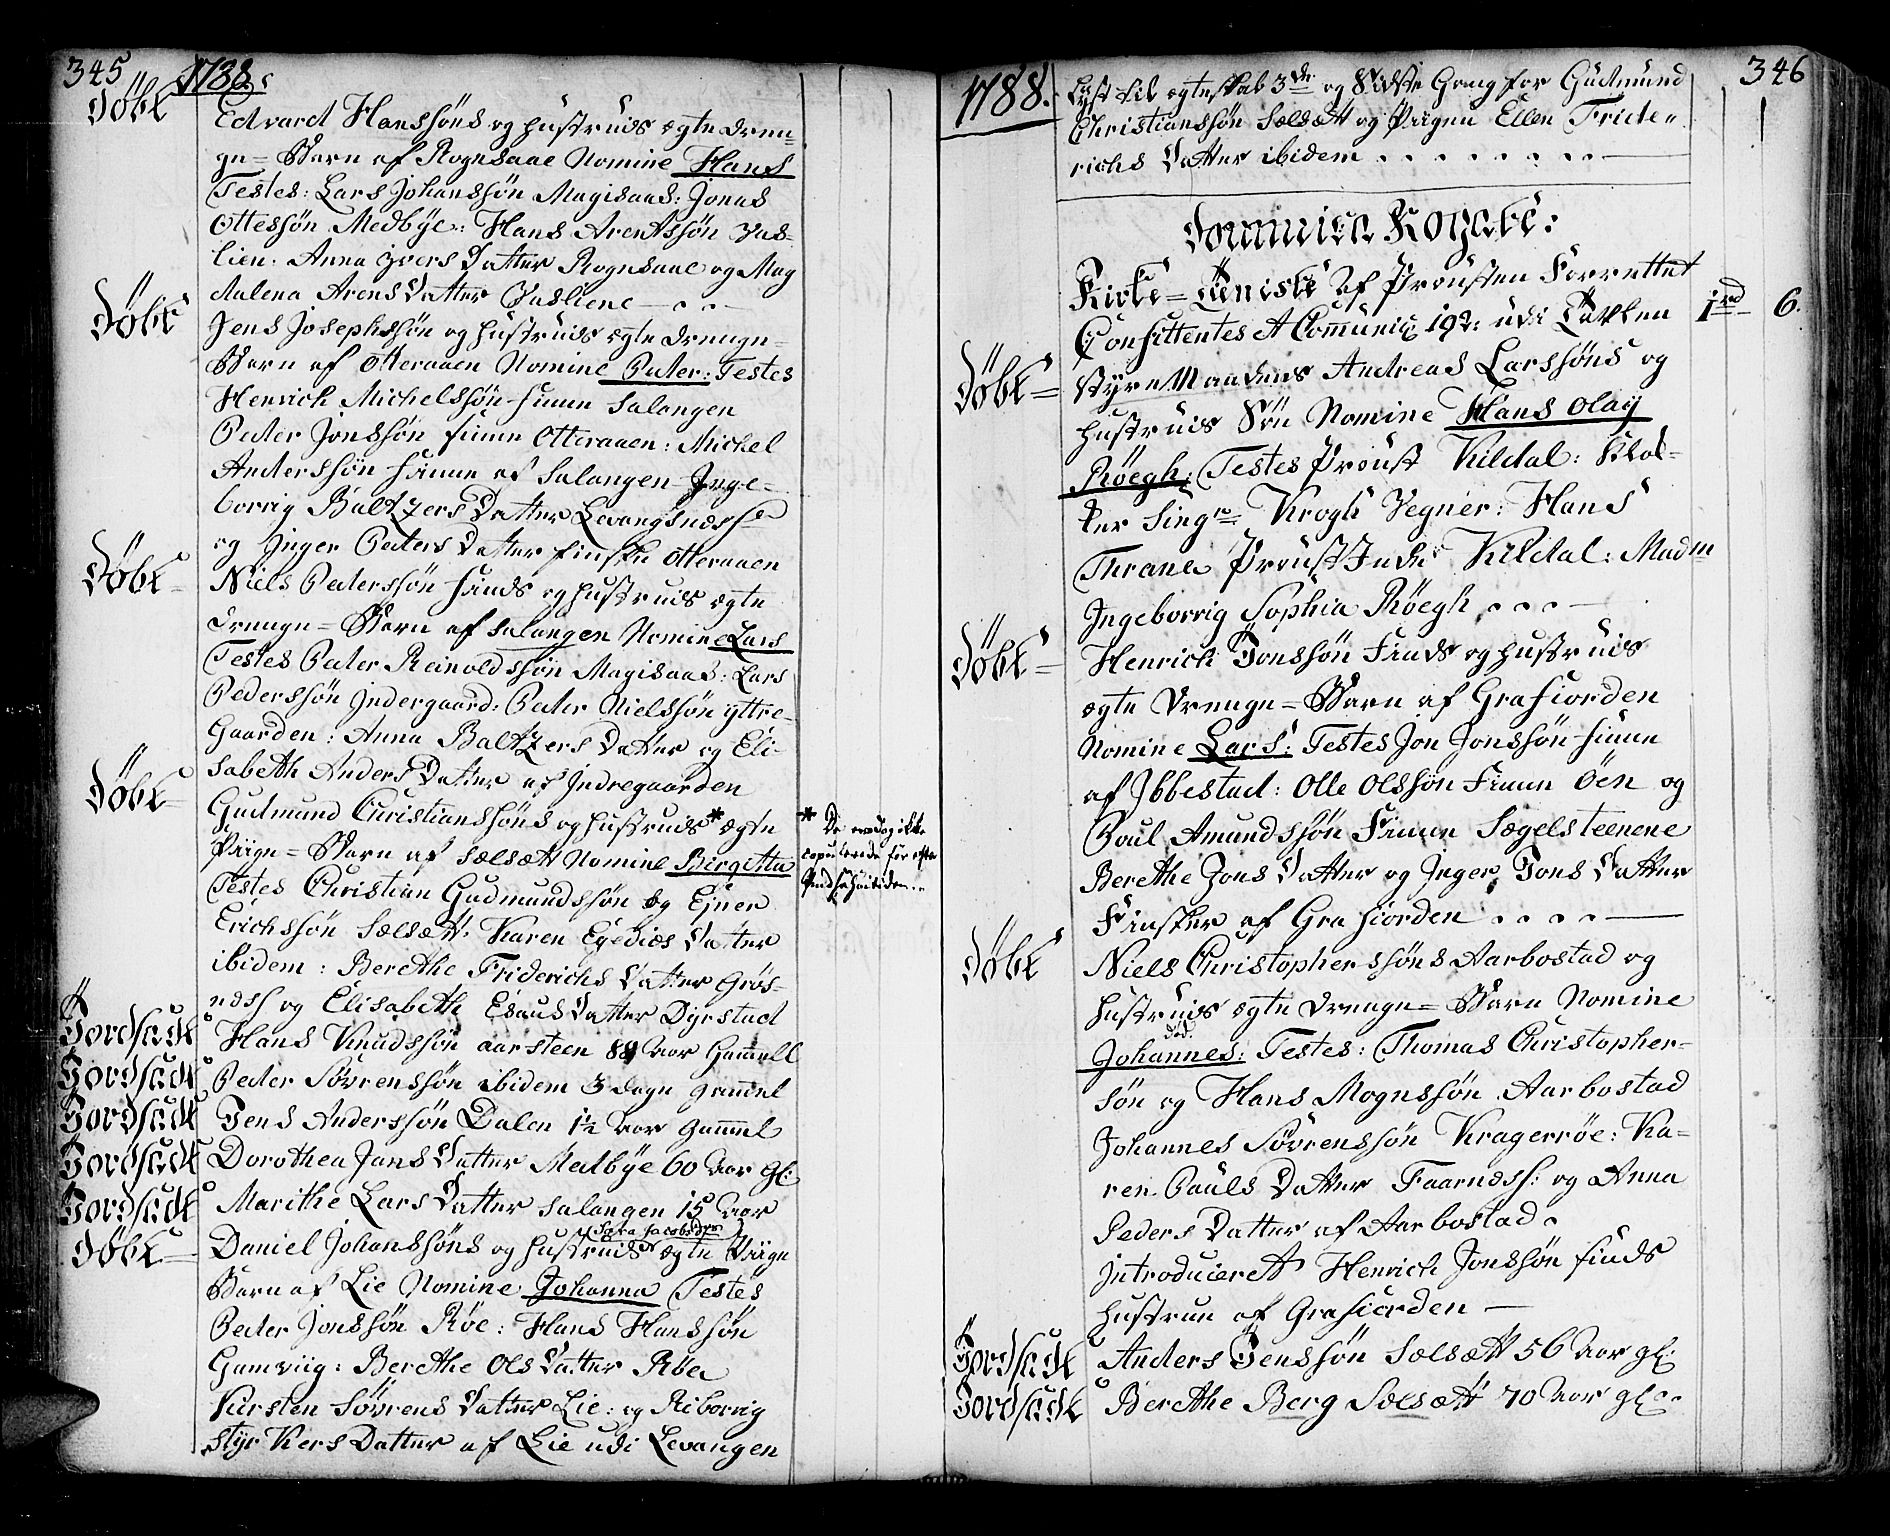 345 1788.
Döbt Edvard Hanssöns og hustrues ægte Dren-
ge-Barn af Rognsaae Nomine Hans
Testes: Lars Johanssön Magisaas: Jonas
Ottessön Medbÿe: Hans Arentssön Vas-
lien: Anna Ivers Datter Rognsaae og Mag
dalena Arens Datter Vasliene
Döbt Jens Josephssön og hustrues ægte Drenge-
Barn af Otteraaen Nomine Peder: Testes
Henrich Michelssön finn Salangen
Peder Jonssön finn Otteraaen: Michel
Anderssön finn af Salangen Inge-
borrig Baltzers Datter Levangsnæss
og Inger Peders Datter finske Otteraaen
Döbt Niels Pederssön finds og hustrues ægte
Drenge-Barn af Salangen Nomine Lars
Testes Peder Reinoldssön Magisaas: Lars
Pederssön Indergaard: Peder Nielssön yttre-
Gaarden: Anna Baltzers Datter og Eli
sabeth Anders Datter af Indregaarden
Döbt Gudmund Christianssöns og hustrues * ægte
Piige-Barn af Sælsætt Nomine Birgitta
Testes Christian Gudmundssön og Ejner
Erichssön Sælsætt. Karen Egedies Datter
ibidem: Berethe Friderichs Datter Grös-
næss og Elisabeth Esaus Datter Dyrstad
* De era dog ikke
copulerede för efter
Jordfæstet Hans Knudssön Aarsteen 88 Aar Gammell
Jordfæstet Peder Sövrenssön ibidem 3 dage gammel
Jordfæstet Jens Anderssön Dalen 1½ Aar gammel
Jordfæstet Dorothea Jans Datter Medbÿe 60 Aar gl:
Jordfæstet Marithe Lars Datter Salangen 15 Aar
Sara Jacobsdtr
Döbt Daniel Johanssöns og hustrues ægte Piige
Barn af Lie Nomine Johanna Testes
Peder Jonssön Röe: Hans Hanssön
Gamviig: Berethe Ols Datter Röe
Kirsten Sövrens Datter Lie: og Riborrig
Styrkers Datter af Lie udi Levangen
1788. 346
Lyst til ægteskab 3de og Sidste Gang for Gudmund
Christianssön Sælsætt og Piigen Ellen Fride-
richs Datter ibidem
Dominica Rogate:
Kirke-Tieniste af Prousten Forrettet
Confitentes et Communic: 192: udi Tavlen 1rd 6.
Döbt StyreMandens Andreas Larssöns og
hustrues Sön Nomine Hans Olay
Röegh: Testes Proust Kildal: Klok-
ker Singr Krogh Vegner: Hans
Thrane ProustInde Kildal: Madm
Ingeborrig Sophia Röegh
Döbt Henrich Jonssön Finds og hustrues
ægte Drenge-Barn af Grafiorden
Nomine Lars: Testes Jon Jonssön finn
af Ibbestad: Olle Olssön Finn Öen og
Poul Amundssön Finn Sægelsteenene
Berethe Jons Datter og Inger Jons Datter
Finsker af Grafiorden
Döbt Niels Christopherssöns Aarbostad og
hustrues ægte Drenge-Barn Nomine
död.
Johannes: Testes: Thomas Christopher-
sön og Hans Mognssön Aarbostad
Johannes Sövrenssön Kragerröe: Ka-
ren Pauls Datter Faarnæss: og Anna
Peders Datter af Aarbostad.
Introducerett Henrich Jonssön finds
hustrue af Grafiorden
Jordfæstet Anders Jenssön Sælsætt 56 Aar gl:
Jordfæstet Berethe Berg Sælsætt 70 Aar gl: